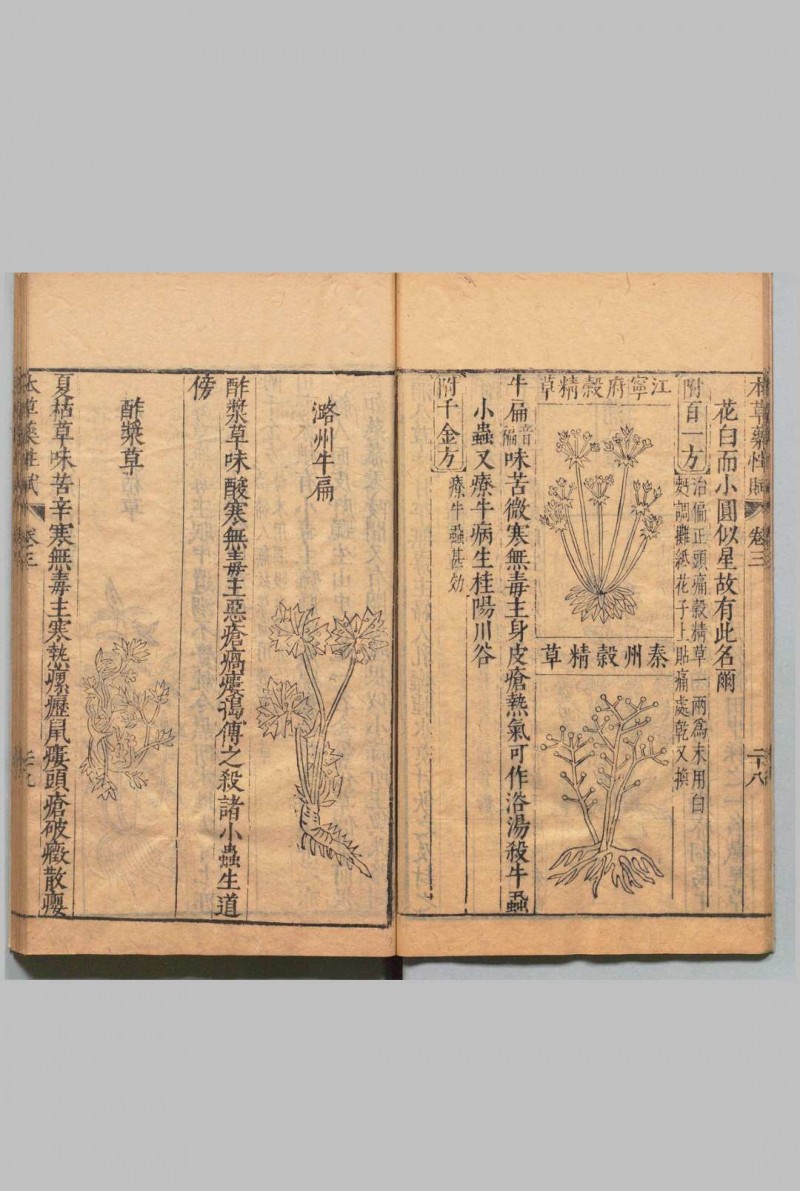 本草藥性賦 卷三 二十八
花白而小圓似星故有此名爾
附百一方
治偏正頭痛穀精草一兩爲末用白
麪調攤紙花子上貼痛處乾又換
江寧府穀精草
秦州穀精草
牛扁音
褊味苦微寒無毒主身皮瘡熱氣可作浴湯殺牛蝨
小蟲又療牛病生桂陽川谷
附千金方
療牛蝨甚効
潞州牛扁
酢漿草味酸寒無毒主惡瘡瘑瘻搗傅之殺諸小蟲生道
傍
酢漿草
夏枯草味苦辛寒無毒主寒熱瘰癧鼠瘻頭瘡破癥散癭
本草藥性賦 卷三 二十九